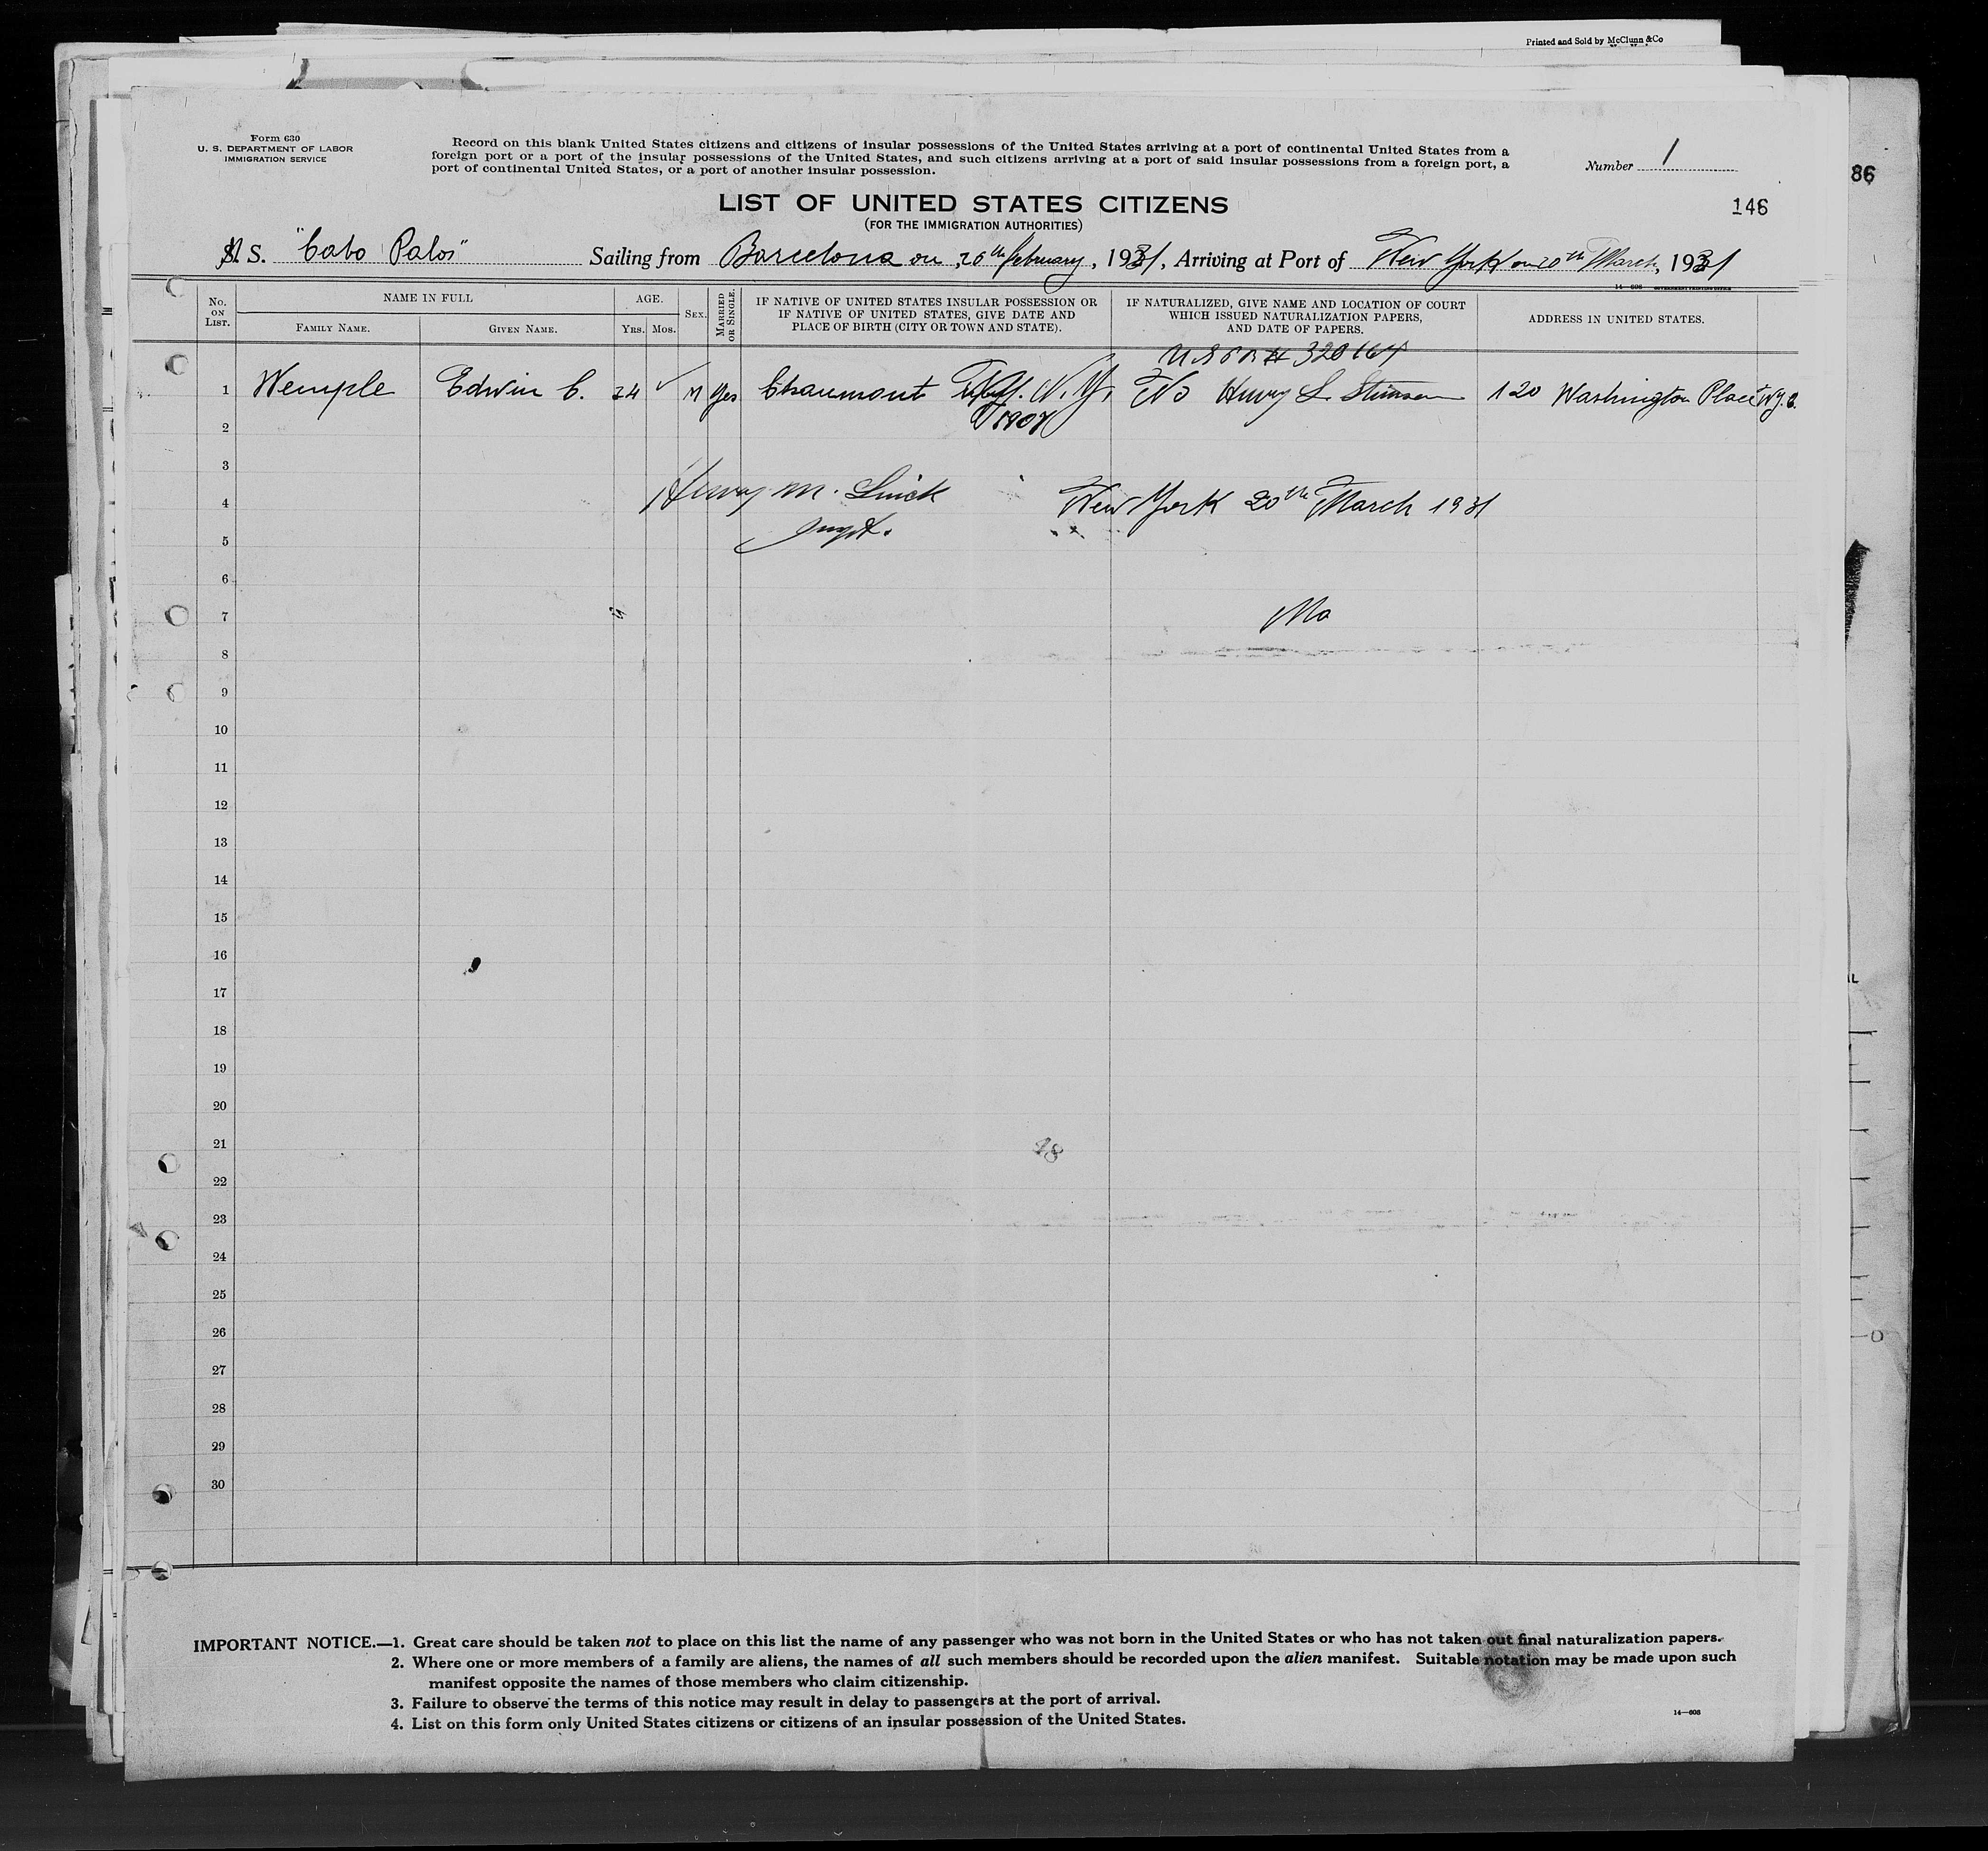 Printed and Sold by McClunn & Co
Form 630
U. S. DEPARTMENT OF LABOR
IMMIGRATION SERVICE
Record on this blank United States citizens and citizens of insular possessions of the United States arriving at a port of continental United States from a
foreign port or a port of the insular possessions of the United States, and such citizens arriving at a port of said insular possessions from a foreign port, a
port of continental United States, or a port of another insular possession.
Number 1
86
146
LIST OF UNITED STATES CITIZENS
(FOR THE IMMIGRATION AUTHORITIES)
S. "Cabo Palos" Sailing from Barcelona on 26th february, 1931, Arriving at Port of New York on 20th March, 1931
14—608 GOVERNMENT PRINTING OFFICE
No. ON LIST.
NAME IN FULL
FAMILY NAME.
GIVEN NAME.
AGE.
YRS. MOS.
SEX.
MARRIED OR SINGLE.
IF NATIVE OF UNITED STATES INSULAR POSSESSION OR
IF NATIVE OF UNITED STATES, GIVE DATE AND
PLACE OF BIRTH (CITY OR TOWN AND STATE).
IF NATURALIZED, GIVE NAME AND LOCATION OF COURT
WHICH ISSUED NATURALIZATION PAPERS,
AND DATE OF PAPERS.
ADDRESS IN UNITED STATES.
320164
1 Wemple Edwin C. 24 ✓ M yes Chaumont N.Y. No Henry L. Stimson 120 Washington Place N.Y.C.
1907
2
3
4 Henry M. New York 20th March 1931
5
6
7
8
9
10
11
12
13
14
15
16
17
18
19
20
21
22
23
24
25
26
27
28
29
30
IMPORTANT NOTICE.—1. Great care should be taken not to place on this list the name of any passenger who was not born in the United States or who has not taken out final naturalization papers.
2. Where one or more members of a family are aliens, the names of all such members should be recorded upon the alien manifest. Suitable notation may be made upon such
manifest opposite the names of those members who claim citizenship.
3. Failure to observe the terms of this notice may result in delay to passengers at the port of arrival.
4. List on this form only United States citizens or citizens of an insular possession of the United States.
14—608